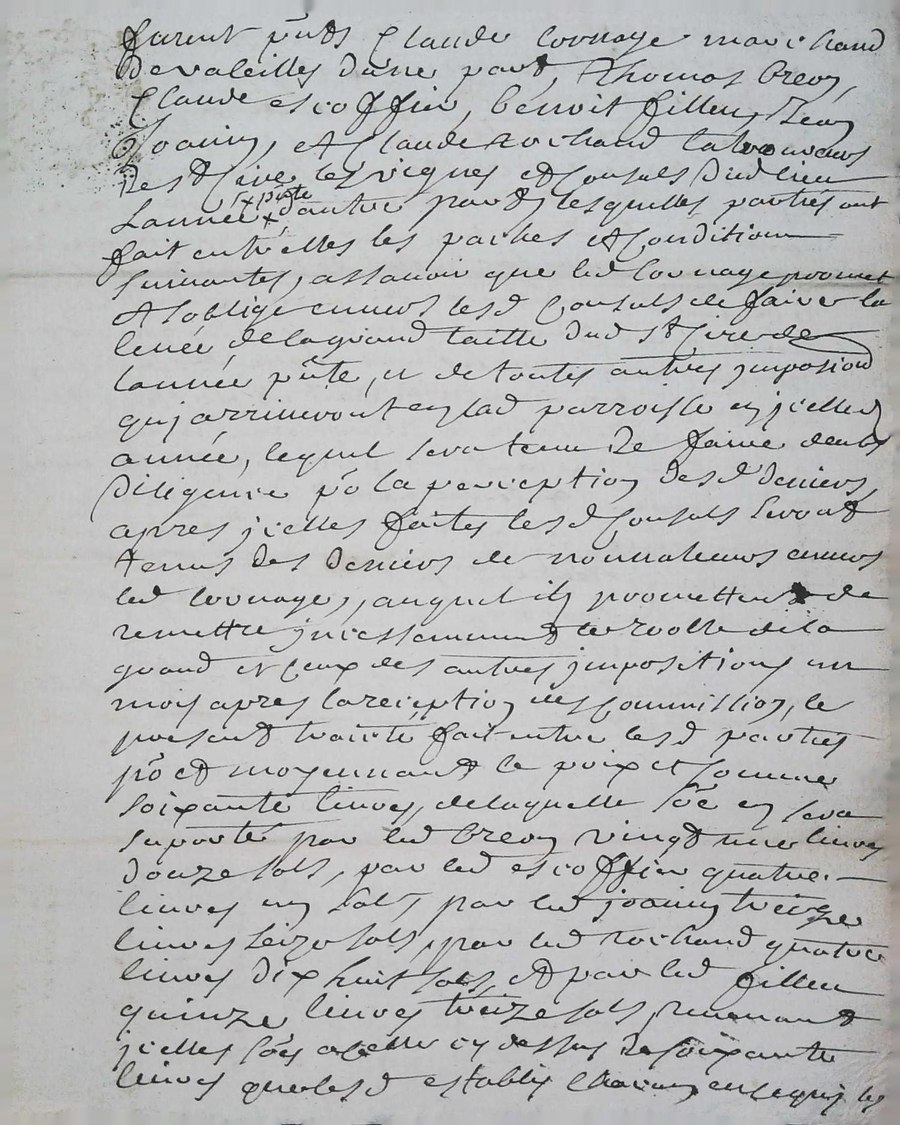 furent pnts Claude Cornage marchand
de valeilles d'une part, Thomas breu,
Claude escoffier, benoit filleu, Jean
Joanin, et Claude rochand laboureurs
de st Cire les vignes et Consuls dud lieu
Lannée x d'autre part, lesquelles parties ont
x pnte
fait entre elles les paches et Conditions
suivantes, assavoir que led Cornage promet
et soblige envers lesd Consuls de faire la
levée de la grand taille dud st Cire de
lannée pnte, et de toutes autres jmpositions
quj arriveront en lad parroisse en jcelle
année, lequel sera tenu de faire deues
diligence po la perception desd deniers
apres jcelles faites lesd Consuls seront
tenus des deniers de nonvaleurs envers
led Cornage, auquel ils promettent de
remettre jncessamment le roolle de la
grand et Ceux des autres jmpositions un
mois apres la reception des Commission, le
present traitté fait entre lesd parties
po et moyennant le prix et somme
soixante livres, de laquelle soe en sera
suporté par led breu vingt une livres
douze sols, par led escoffier quatre
livres un sols, par led joanin treize
livres seize sols, par led rochand quatre
livres dix huit sols, et par led filleu
quinze livres treize sols, revenant
jcelles soes a celle cy dessus de soixante
livres que lesd establis Chacun en ce quj les